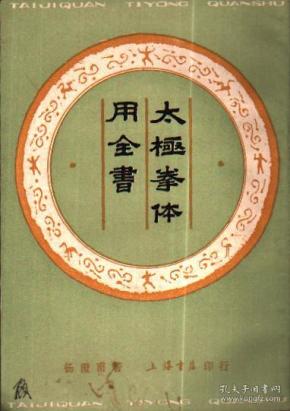 TAIJIQUAN TIYONG QUANSHU
太極拳体
用全書
杨澄甫著 上海书店印行
TAIJIQUAN TIYONG QUANSHU
孔夫子旧书网